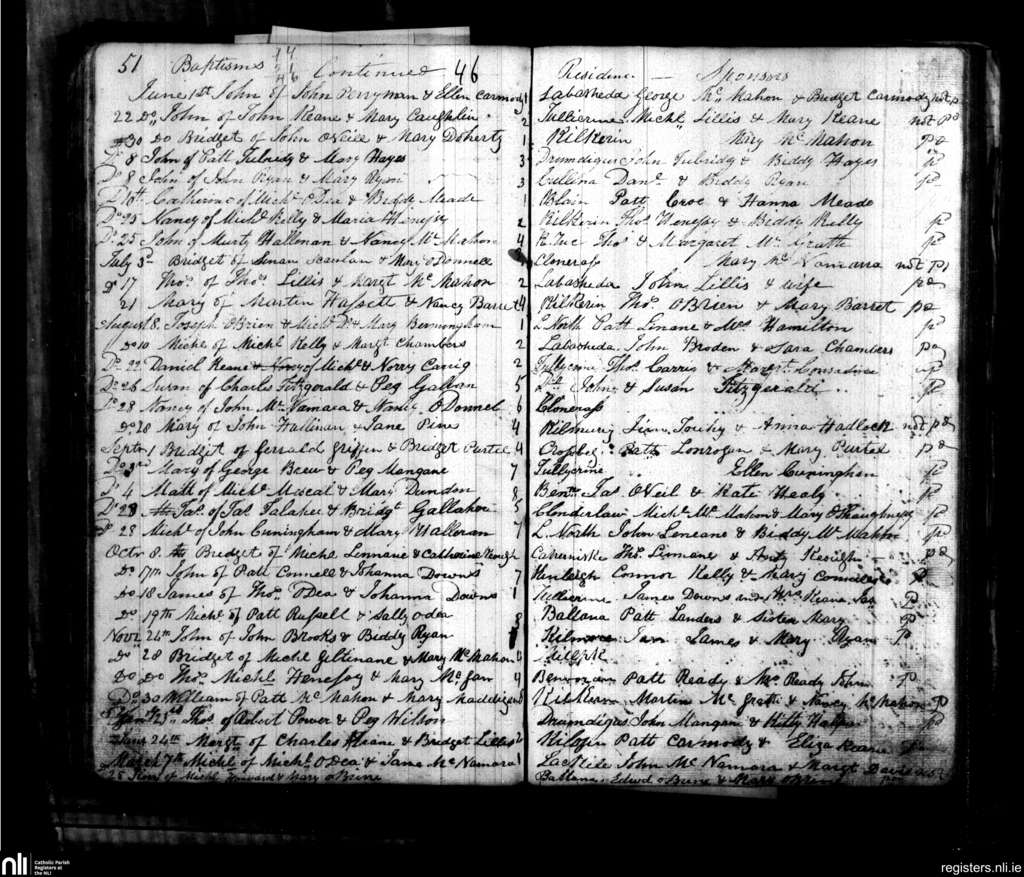 51 Baptisms Continued 46
Residence — Sponsors
June 1st John of John Perryman & Ellen Carmody Labasheda George Mc Mahon & Bridget Carmody not p
22 Do John of John Keane & Mary Caughlin 2 Tullicrine Michl Lillis & Mary Keane not Pd
30 do Bridget of John ONeill & Mary Doherty 1 Kilkerin Mary Mc Mahon pd
8 John of Patt Tubridy & Mary Hayes 3 Drumdigus John Tubridy & Biddy Hayes p
Do 8 John of John Ryan & Mary Ryan 3 Cullina Danl & Biddy Ryan p
Do 10th Catherine of Michl ODea & Biddy Meade 1 Blain Patt Croe & Hanna Meade
Do 25 Nancy of Michl Kelly & Maria Henesy 2 Kilkerin Thos Henesey & Biddy Kelly p
Do 25 John of Murty Hallonan & Nancy Mc Mahon 4 Thos & Margaret Mc Grath p
July 3rd Bridget of Senan Scanlan & Mary ODonnell Clonerass Mary Mc Namara not pd
Do 17 Thos of Thos Lillis & Margt Mc Mahon 2 Labasheda John Lillis & wife pd
21 Mary of Martin Hassett & Nancy Barret 4 Kilkerin Thos OBrien & Mary Barret pd
August 8 Joseph OBrien & Michl Do & Mary Bermongham 1 L North Patt Linane & Mrs Hamilton p
do 10 Michl of Michl Kelly & Margt Chambers 2 Labasheda John Broden & Sara Chambers pd
Do 22 Daniel Keane of Michl & Norry Carrig 2 Tullycrine Thos Carrig & Margt Considine
Do 26 Susan of Charles Fitzgerald & Peg Gallon 5 John & Susan Fitzgerald p
Do 28 Nancy of John Mc Namara & Nancy ODonnel 6 Clonerass
do 28 Mary of John Hallinan & Jane Pine 4 Kilmurry & Anna Hadlock not pd
Septr 1 Bridget of Gerrald Griffin & Bridget Purtel 4 Patt Lonrogan & Mary Purtel pd
Do 3rd Mary of George Brew & Peg Mangane 7 Tullycrine Ellen Cuningham p
Do 4 Matt of Michl Miscal & Mary Dundon 8 Jas ONeil & Kate Healy p
Do 28 Jas of Jas Talahee & Bridgt Gallahon 5 Clonderlaw Michl Mc Mahon & Mary OShaughnessy p
Do 28 Michl of John Cuningham & Mary Halloran 7 L. North John Leneane & Biddy Mc Mahon p
Octr 8 Bridget of Michl Linnane & Catherine Keough Thos Linnane & Anty Keough pd
do 17th John of Patt Connell & Johanna Downs 7 Connor Kelly & Mary
do 18 James of Thos ODea & Johanna Downs 1 Tullicrine James Downs and Mrs Keane p
do 19th Michl of Patt Russell & Sally odea 8 Ballana Patt Landers & Sister Mary p
Novr 26th John of John Brooks & Biddy Ryan Kilmore James & Mary Ryan p
do 28 Bridget of Michl Giltenane & Mary Mc Mahon
do do Thos Michl Henessy & Mary Mc Gan 4 Patt Ready & Mrs Ready John p
Do 30 William of Patt Mc Mahon & Mary Maddigan 8 Kilkerin Martin Mc Grath & Nancy Mc Mahon p
Jany 23rd Thos of Robert Power & Peg Wilson Drumdigus John Mangan & Kitty p
Jany 24th Margt of Charles Keane & Bridget Lillis Patt Carmody & Eliza Keane
March 7th Michl of Michl ODea & Jane Mc Namara 1 John Mc Namara & Margt
25 of Michl & Mary o Brine Ballana Edwd oBrine & Mary oBrine
nli Catholic Parish Registers at the NLI
registers.nli.ie